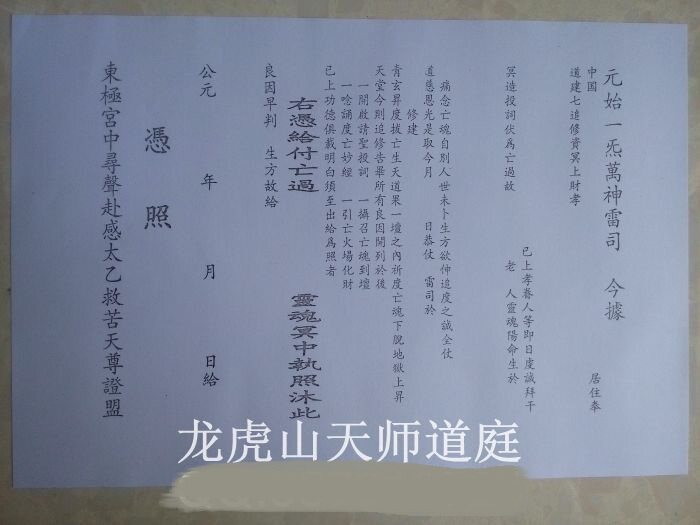 元始一炁萬神雷司 今據
中国 居住奉
道建七追修資冥上財孝
已上孝眷人等即日虔誠拜干
冥造投詞伏為亡過故 老 人靈魂陽命生於
痛念亡魂自別人世未卜生方欲伸追度之誠全仗
道慈恩光是取今月 日恭仗 雷司於
修建
青玄昇度拔亡生天道果一壇之內祈度亡魂下脫地獄上昇
天堂今則追修告畢所有良因開列於後
一開啟請聖投詞 一攝召亡魂到壇
一唸誦度亡妙經 一引亡火場化財
已上功德俱載明白須至出給為照者
右憑給付亡過 靈魂冥中執照沐此
良因早判 生方故給
公元 年 月 日給
憑照
東極宮中尋聲赴感太乙救苦天尊證盟
龙虎山天师道庭